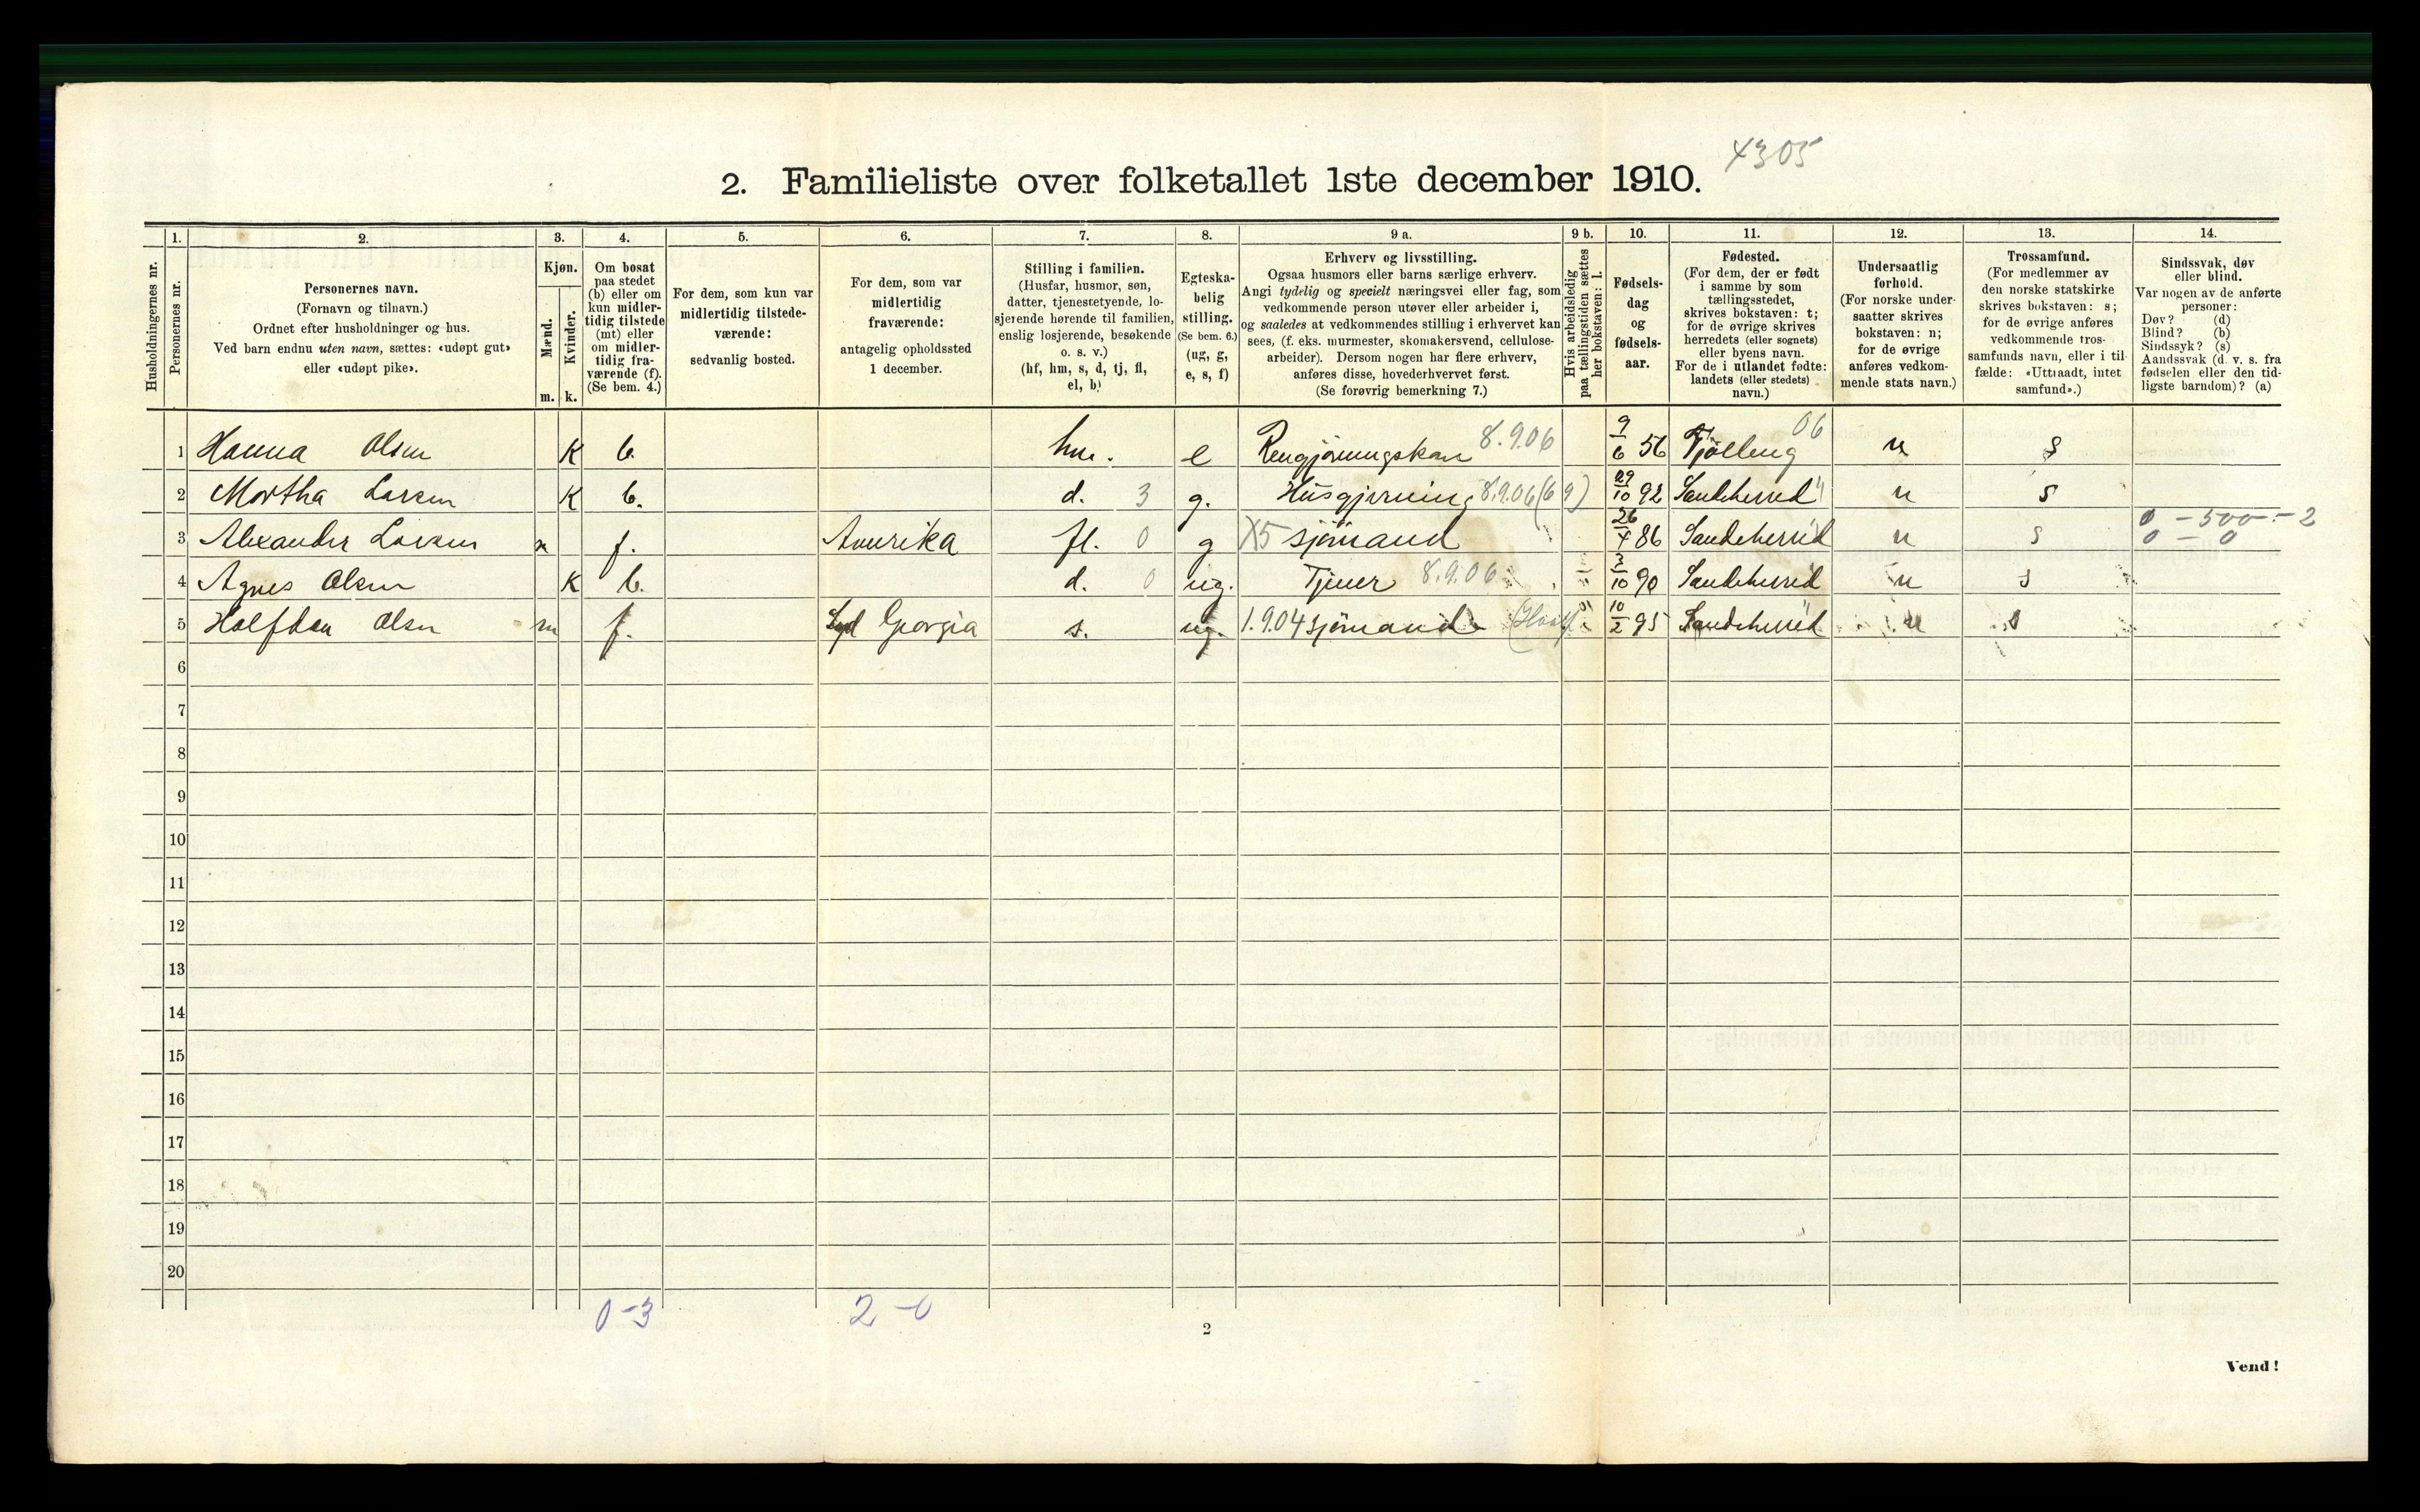 4305
2. Familieliste over folketallet 1ste december 1910.
Husholdningernes nr.
1. 2. 3. 4. 5. 6. 7. 8. 9 a. 9 b. 10. 11. 12. 13. 14.
Personernes nr.
Personernes navn.
(Fornavn og tilnavn.)
Ordnet efter husholdninger og hus.
Ved barn endnu uten navn, sættes: «udøpt gut»
eller «udøpt pike».
Kjøn.
Mænd.
Kvinder.
m. k.
Om bosat
paa stedet
(b) eller om
kun midler-
tidig tilstede
(mt) eller
om midler-
tidig fra-
værende (f).
(Se bem. 4.)
For dem, som kun var
midlertidig tilstede-
værende:
sedvanlig bosted.
For dem, som var
midlertidig
fraværende:
antagelig opholdssted
1 december.
Stilling i familien.
(Husfar, husmor, søn,
datter, tjenestetyende, lo-
sjerende hørende til familien,
enslig losjerende, besøkende
o. s. v.)
(hf, hm, s, d, tj, fl,
el, b)
Egteska-
belig
stilling.
(Se bem. 6.)
(ug, g,
e, s, f)
Erhverv og livsstilling.
Ogsaa husmors eller barns særlige erhverv.
Angi tydelig og specielt næringsvei eller fag, som
vedkommende person utøver eller arbeider i,
og saaledes at vedkommendes stilling i erhvervet kan
sees, (f. eks. murmester, skomakersvend, cellulose-
arbeider). Dersom nogen har flere erhverv,
anføres disse, hovederhvervet først.
(Se forøvrig bemerkning 7.)
Hvis arbeidsledig
paa tællingstiden sættes
her bokstaven: l.
Fødsels-
dag
og
fødsels-
aar.
Fødested.
(For dem, der er født
i samme by som
tællingsstedet,
skrives bokstaven: t;
for de øvrige skrives
herredets (eller sognets)
eller byens navn.
For de i utlandet fødte:
landets (eller stedets)
navn.)
Undersaatlig
forhold.
(For norske under-
saatter skrives
bokstaven: n;
for de øvrige
anføres vedkom-
mende stats navn.)
Trossamfund.
(For medlemmer av
den norske statskirke
skrives bokstaven: s;
for de øvrige anføres
vedkommende tros-
samfunds navn, eller i til-
fælde: «Uttraadt, intet
samfund».)
Sindssvak, døv
eller blind.
Var nogen av de anførte
personer:
Døv? (d)
Blind? (b)
Sindssyk? (s)
Aandssvak (d. v. s. fra
fødselen eller den tid-
ligste barndom)? (a)
1 Hanna Olsen K b. hm. e Rengjøringskone 8.9.06 9/6 56 Tjølling 06 n s
2 Martha Larsen K b. d. 3 g. Husgjerning 8.9.06 (69) 29/10 92 Sandeherred n s
3 Alexander Larsen m f. Amerika fl. 0 g X5 sjømand 26/4 86 Sandeherred n s 0 - 500 - 2
0 - 0
4 Agnes Olsen K b. d. 0 ug. Tjener 8.9.06 3/10 90 Sandeherred n s
5 Halfdan Olsen m f. Syd Georgia s. ug. 1.9.04 sjømand (Hval) 10/2 95 Sandeherred n s
6
7
8
9
10
11
12
13
14
15
16
17
18
19
20
0-3 2-0
2
Vend!